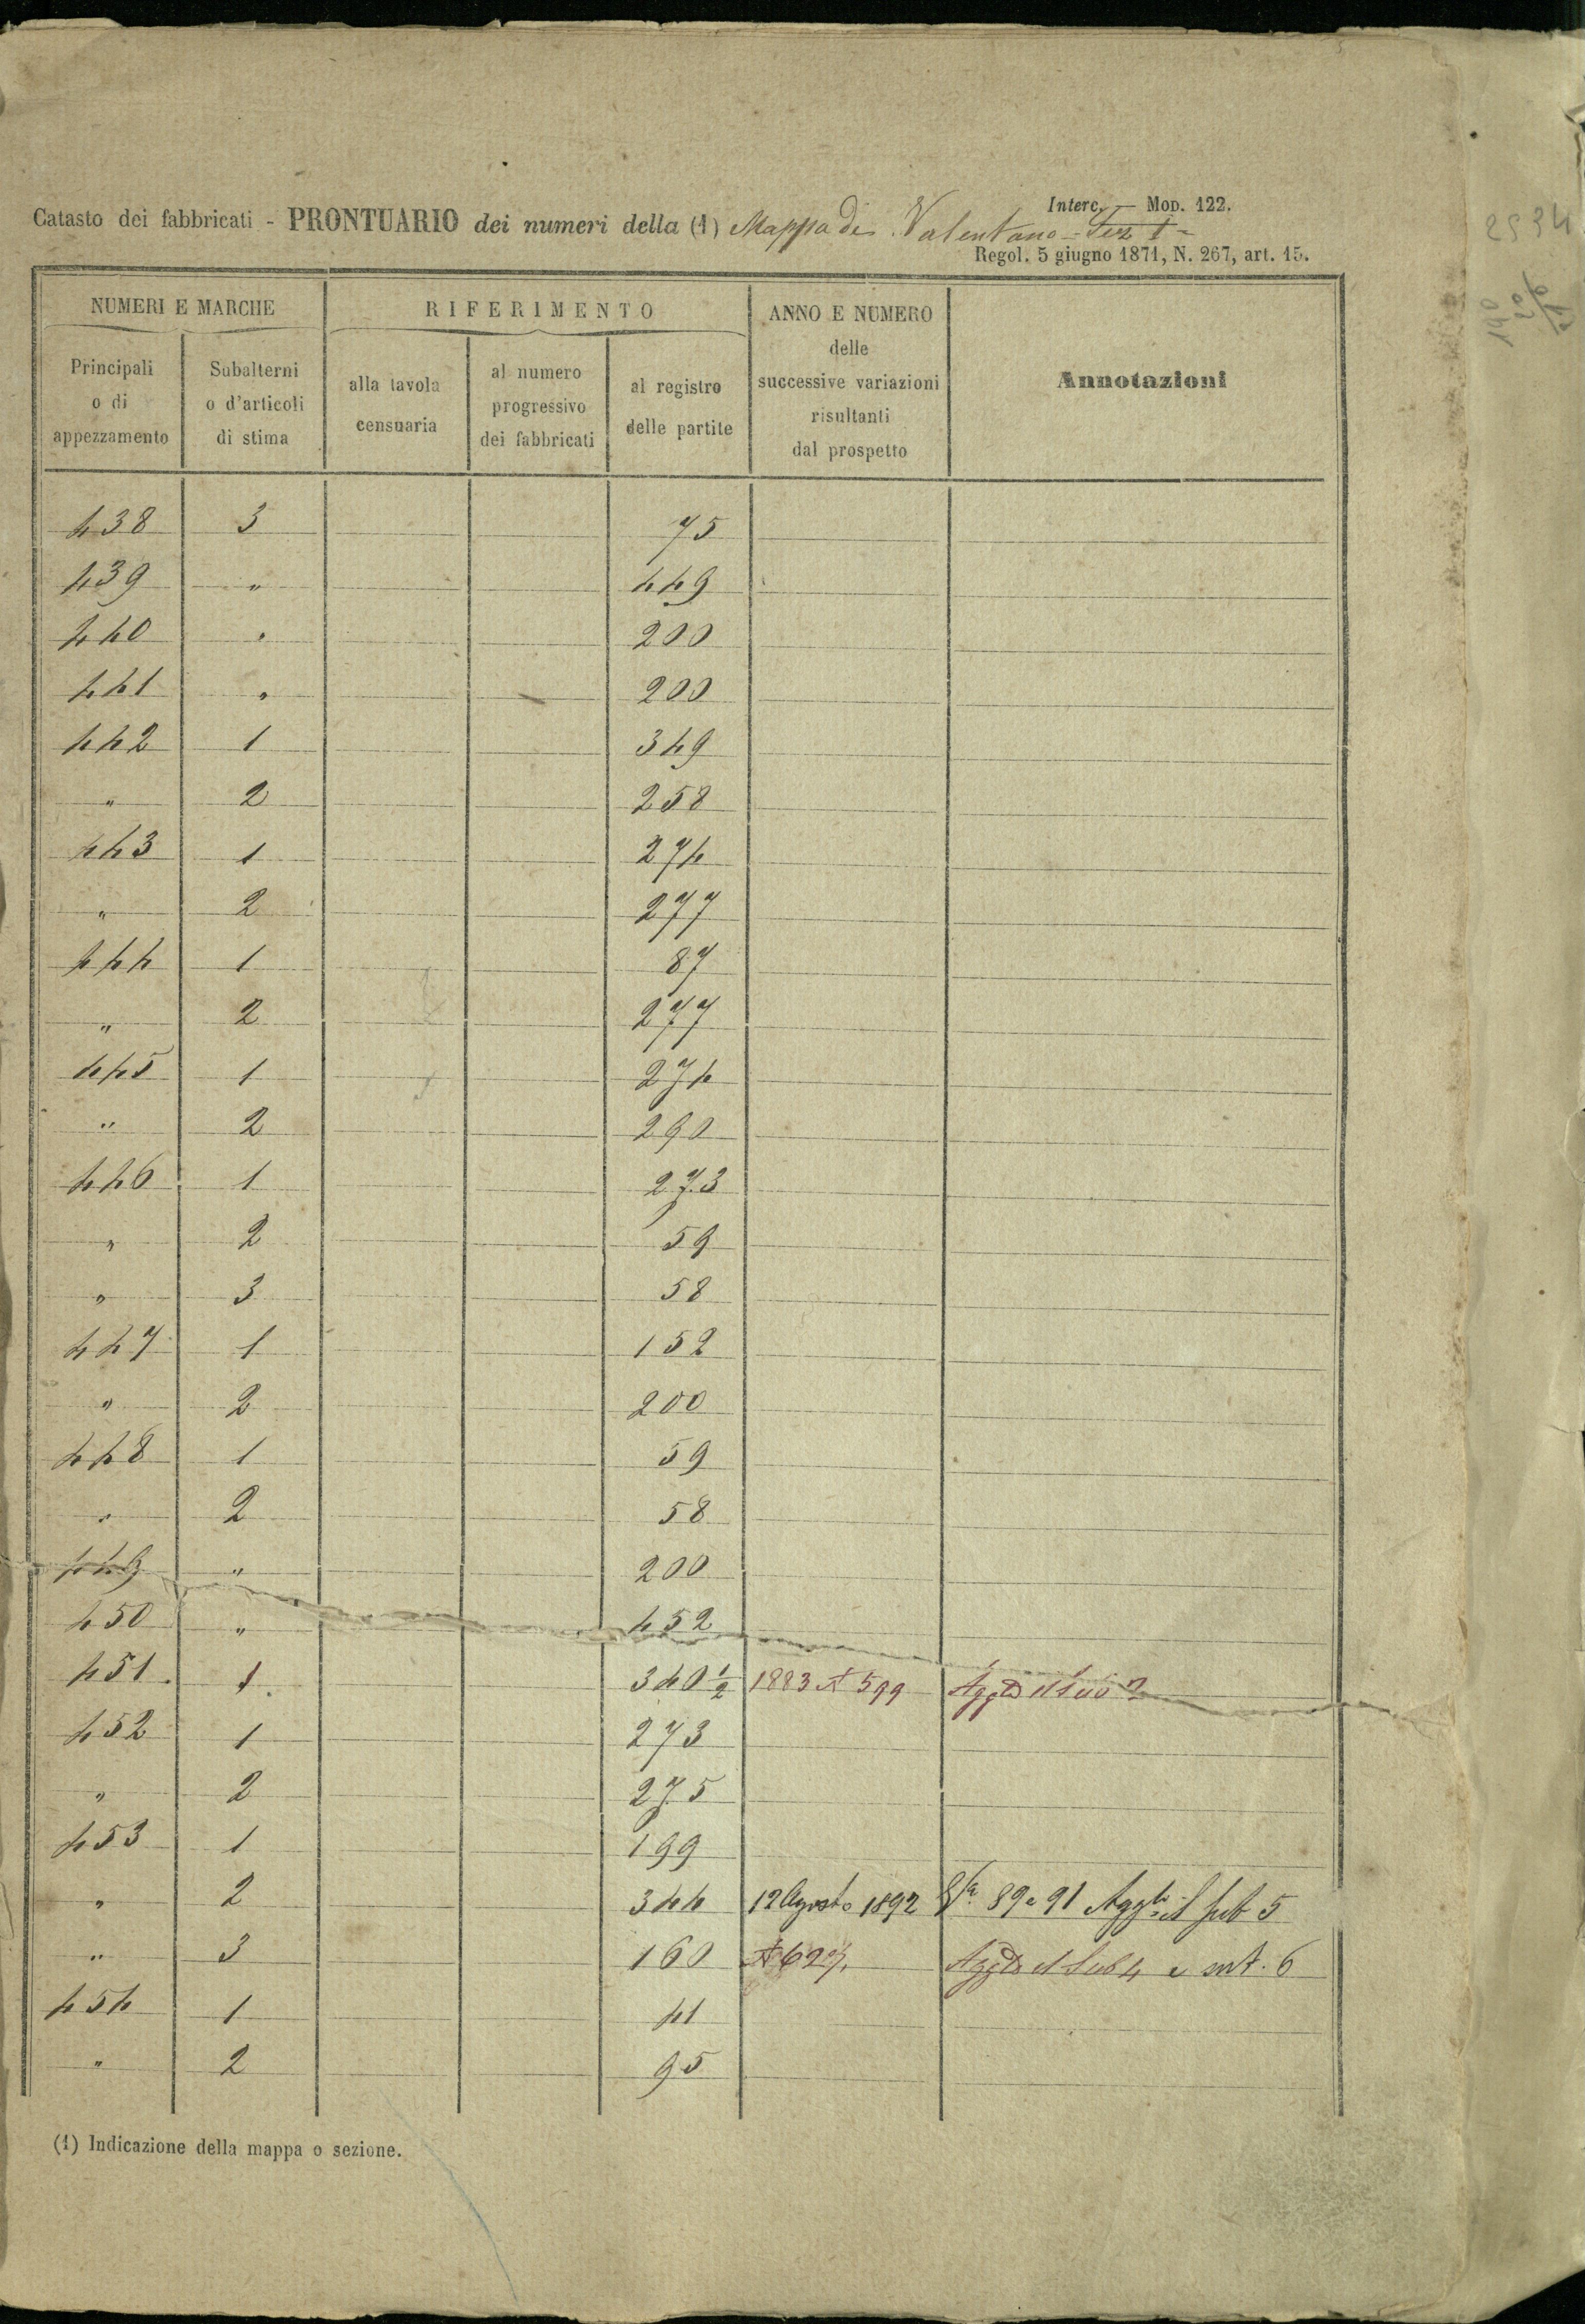 Interc. — Mod. 122.
Catasto dei fabbricati - PRONTUARIO dei numeri della (1) Mappa di Valentano - Sez I -
Regol. 5 giugno 1871, N. 267, art. 15.
NUMERI E MARCHE RIFERIMENTO ANNO E NUMERO delle successive variazioni risultanti dal prospetto Annotazioni
Principali o di appezzamento Subalterni o d'articoli di stima alla tavola censuaria al numero progressivo dei fabbricati al registro delle partite
438 3 75
439 " 449
440 " 200
441 " 200
442 1 349
" 2 258
443 1 274
" 2 277
444 1 87
" 2 277
445 1 274
" 2 290
446 1 273
" 2 59
" 3 58
447 1 152
" 2 200
448 1 59
" 2 58
449 " 200
450 " 452
451 1 340 1/2 1883 A 599 Aggto il Sub 2
452 1 273
" 2 275
453 1 199
" 2 344 12 Agosto 1892 89 e 91 Aggti il sub 5
" 3 160 A 627. Aggto il Sub 4 e 6
454 1 41
" 2 95
(1) Indicazione della mappa o sezione.
2534